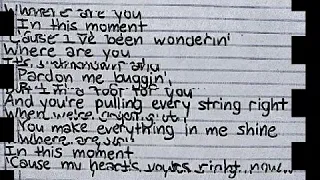 Where are you
In this moment
'Cause I've been wonderin'
Where are you
Pardon me buggin',
But I'm a fool for you
And you're pulling every string right
When we're
You make everything in me shine
Where are you
In this moment
'Cause my heart's yours right now...